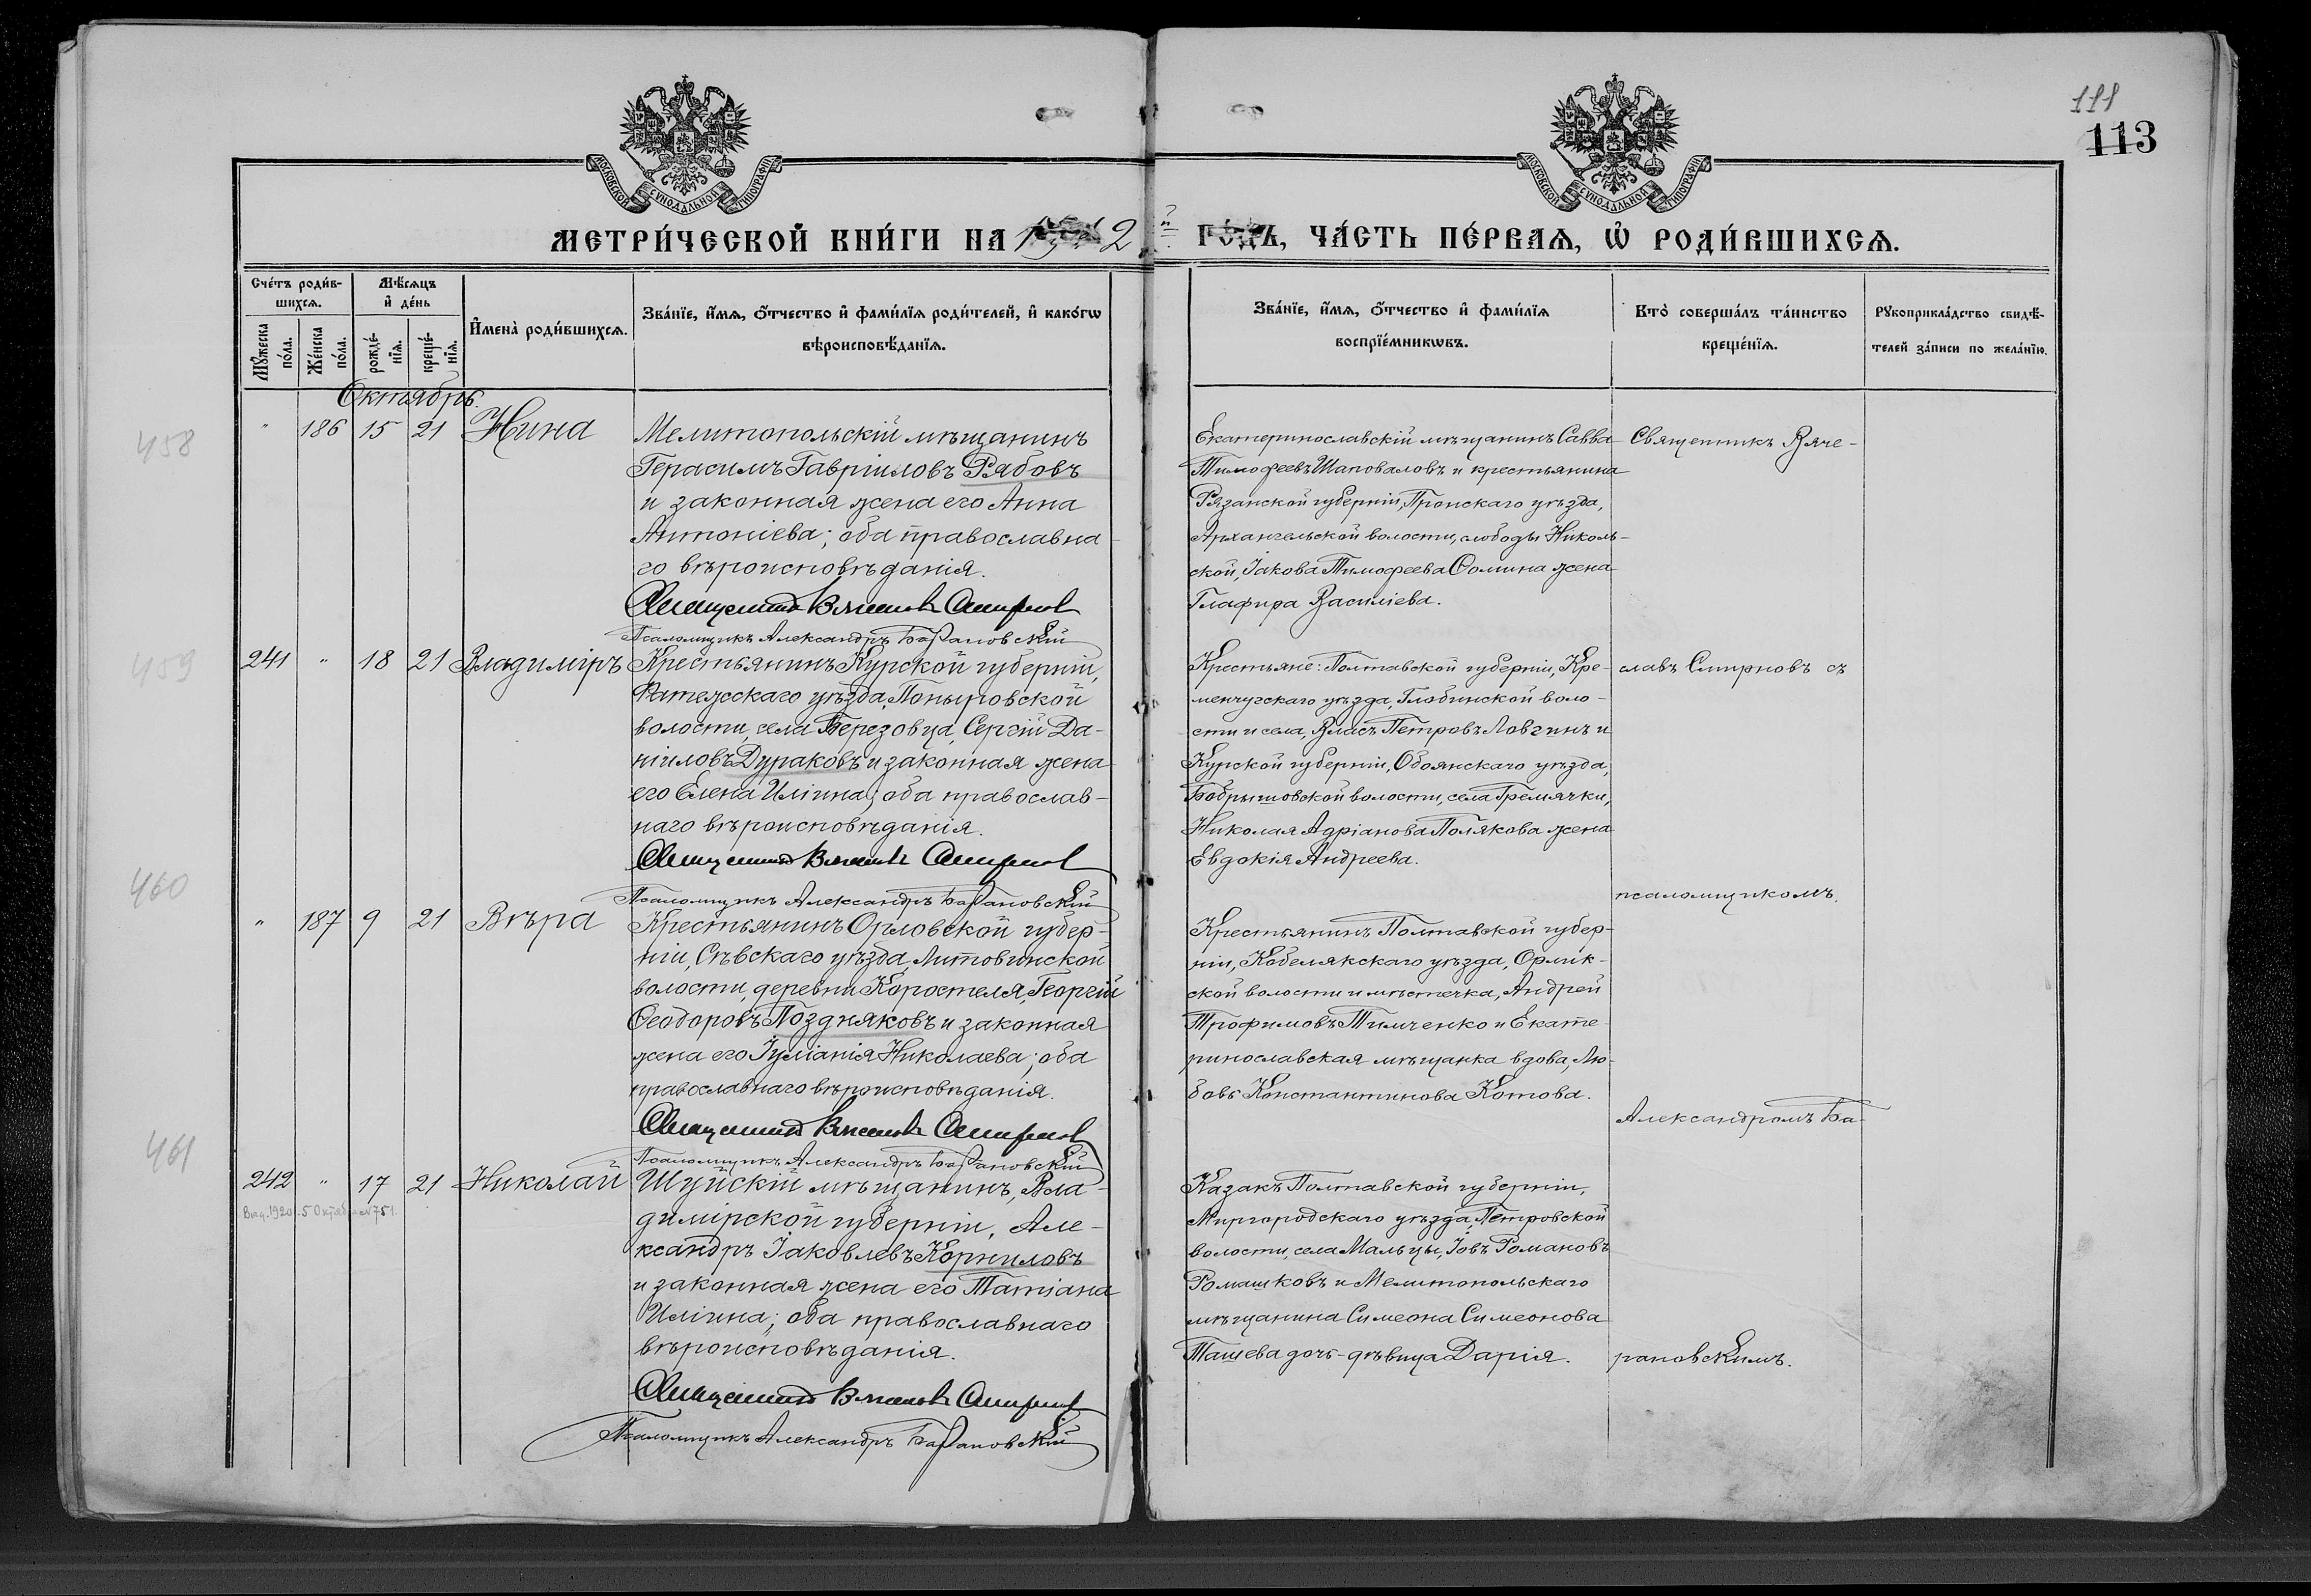 111
113
МОСКОВСКОЙ СѴНОДАЛЬНОЙ ТИПОГРАФІИ
МОСКОВСКОЙ СѴНОДАЛЬНОЙ ТИПОГРАФІИ
МЕТРИ́ЧЕСКОЙ КНИ́ГИ НА 19 2 й ГО́ДЪ, ЧА́СТЬ ПЕ́РВАѦ, Ѡ҆ РОДИ́ВШИХСѦ.
Сче́тъ роди́в-
шихсѧ.
Мꙋ́жеска по́ла.
Же́нска по́ла.
Мѣ́сѧцъ
и҆ де́нь
рожде́-
нїѧ.
креще́-
нїѧ.
И҆мена̀ роди́вшихсѧ.
Зва́нїе, и҆́мѧ, ѻ҆́тчество и҆ фами́лїѧ роди́телей, и҆ како́гѡ
вѣроисповѣ́данїѧ.
Зва́нїе, и҆́мѧ, ѻ҆́тчество и҆ фами́лїѧ
воспрїе́мникѡвъ.
Кто̀ соверша́лъ та́инство
креще́нїѧ.
Рꙋкоприкла́дство свидѣ́-
телей за́писи по жела́нїю.
Октябрь.
458
" 186 15 21 Нина
Мелитопольскій мѣщанинъ
Герасимъ Гавріиловъ Рябовъ
и законная жена его Анна
Антоніева; оба православна-
го вѣроисповѣданія.
Священникъ Вячеславъ Смирновъ
Псаломщикъ Александръ Барановскій
Екатеринославскій мѣщанинъ Савва
Тимофеевъ Шаповаловъ и крестьянина
Рязанской губерніи, Пронскаго уѣзда,
Архангельской волости, слободы Николь-
ской, Іакова Тимофеева Сомина жена
Глафира Василіева.
Священникъ Вяче-
459
241 " 18 21 Владиміръ
Крестьянинъ Курской губерніи,
Фатежскаго уѣзда, Поныровской
волости, села Березовца, Сергій Да-
ніиловъ Дураковъ и законная жена
его Елена Иліина; оба православ-
наго вѣроисповѣданія.
Священникъ Вячеславъ Смирновъ
Псаломщикъ Александръ Барановскій
Крестьяне: Полтавской губерніи, Кре-
менчугскаго уѣзда, Глобинской воло-
сти и села, Власъ Петровъ Ловгинъ и
Курской губерніи, Обоянскаго уѣзда,
Бобрышовской волости, села Гремячки,
Николая Адріанова Полякова жена
Евдокія Андреева.
славъ Смирновъ съ
460
" 187 9 21 Вѣра
Крестьянинъ Орловской губер-
ніи, Сѣвскаго уѣзда, Литовинской
волости, деревни Коростеля, Георгій
Ѳеодоровъ Поздняковъ и законная
жена его Іуліанія Николаева; оба
православнаго вѣроисповѣданія.
Священникъ Вячеславъ Смирновъ
Псаломщикъ Александръ Барановскій
псаломщикомъ
Крестьянинъ Полтавской губер-
ніи, Кобелякскаго уѣзда, Орлик-
ской волости и мѣстечка, Андрей
Трофимовъ Тимченко и Екате-
ринославская мѣщанка вдова, Лю-
бовь Константинова Котова.
Александромъ Ба-
461
242 " 17 21 Николай
Выд. 1920 5 Октября №751.
Шуйскій мѣщанинъ, Вла-
димірской губерніи, Але-
ксандръ Іаковлевъ Корниловъ
и законная жена его Татіана
Иліина; оба православнаго
вѣроисповѣданія.
Священникъ Вячеславъ Смирновъ
Псаломщикъ Александръ Барановскій
Казакъ Полтавской губерніи,
Миргородскаго уѣзда, Петровской
волости, села Мальцы, Іовъ Романовъ
Ромашковъ и Мелитопольскаго
мѣщанина Симеона Симеонова
Ташева дочь-дѣвица Дарія.
рановскимъ.